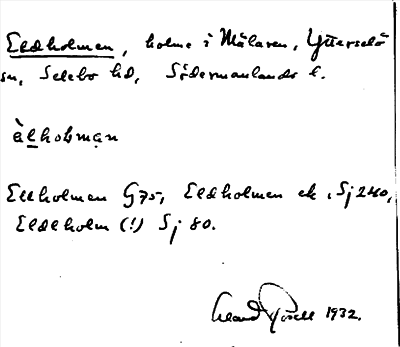 Eldholmen, holme i Mälaren, Ytterselö
sn, Selebo hd, Södermanlands l.
àlholman
Ellholmen G75, Eldholmen ek. Sj 240,
Eldelholm (!) Sj 80.
1932.